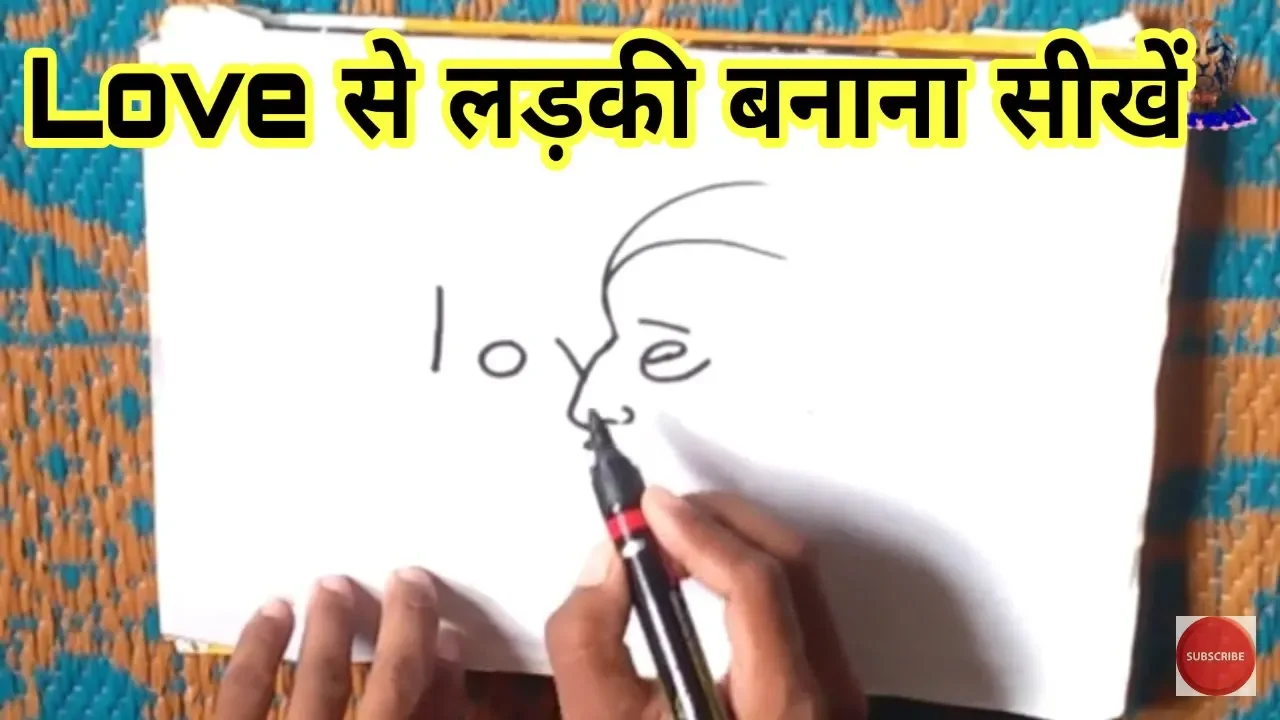 Love से लड़की बनाना सीखें
love
SUBSCRIBE